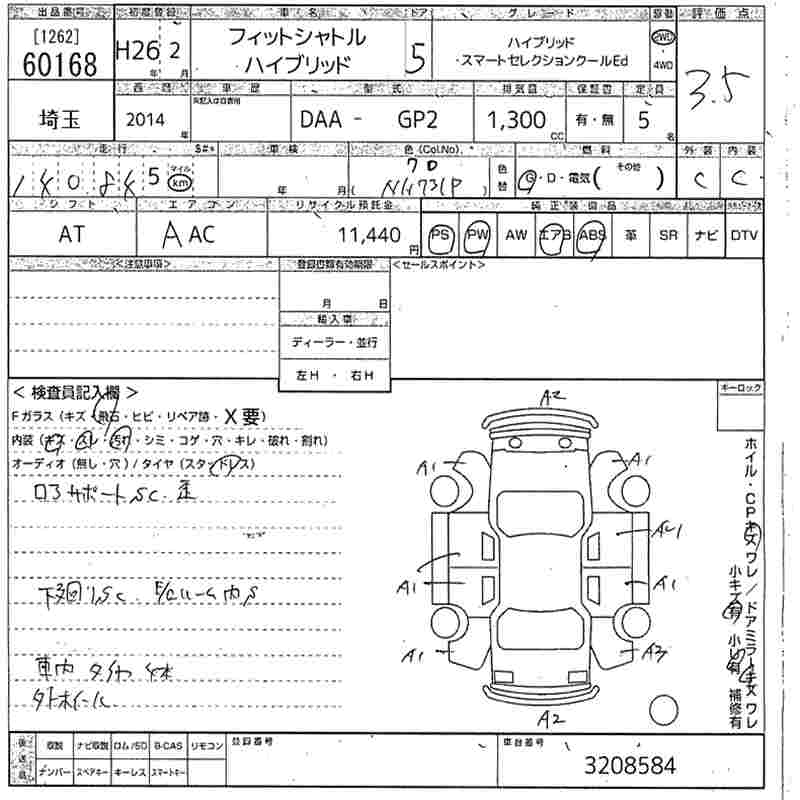 出品番号 初度登録 車名 ドア グレード 駆動 評価点
[1262] 60168 H26年 2月 フィットシャトル ハイブリッド 5 ハイブリッド スマートセレクションクールEd 2WD 4WD 3.5
西暦 車歴 型式 排気量 保証書 定員
埼玉 2014年 DAA - GP2 1,300cc 有・無 5名
走行 S#* 車検 色(Col.No) 色替 燃料 外装 内装
140,845 マイル km 年 月( 70 NH731P ) G・D・電気( その他 ) C C
シフト エアコン リサイクル預託金 純正装備品
AT A AC 11,440円 PS PW AW エアB ABS 革 SR ナビ DTV
<注意事項> 登録書類有効期限 <セールスポイント>
月 日
輸入車
ディーラー・並行
左H ・ 右H
< 検査員記入欄 > キーロック
Fガラス(キズ・飛石・ヒビ・リペア跡・X要)
内装(キズ・スレ・汚れ・シミ・コゲ・穴・キレ・破れ・割れ)
オーディオ(無し・穴)/タイヤ(スタ・ドレス)
ロアサポートSC.歪
下廻りSC.
車内 タイヤ
外ホイール
A2
A1 A1
A1
A1 A1
A1 A3
A2
ホイル・CPキズワレ/ドアミラーキズワレ
小キズ有 小凹有 補修有
後送品 取説 ナビ取説 ロム/SD B-CAS リモコン 登録番号 車台番号
ナンバー スペアキー キーレス スマートキー 3208584